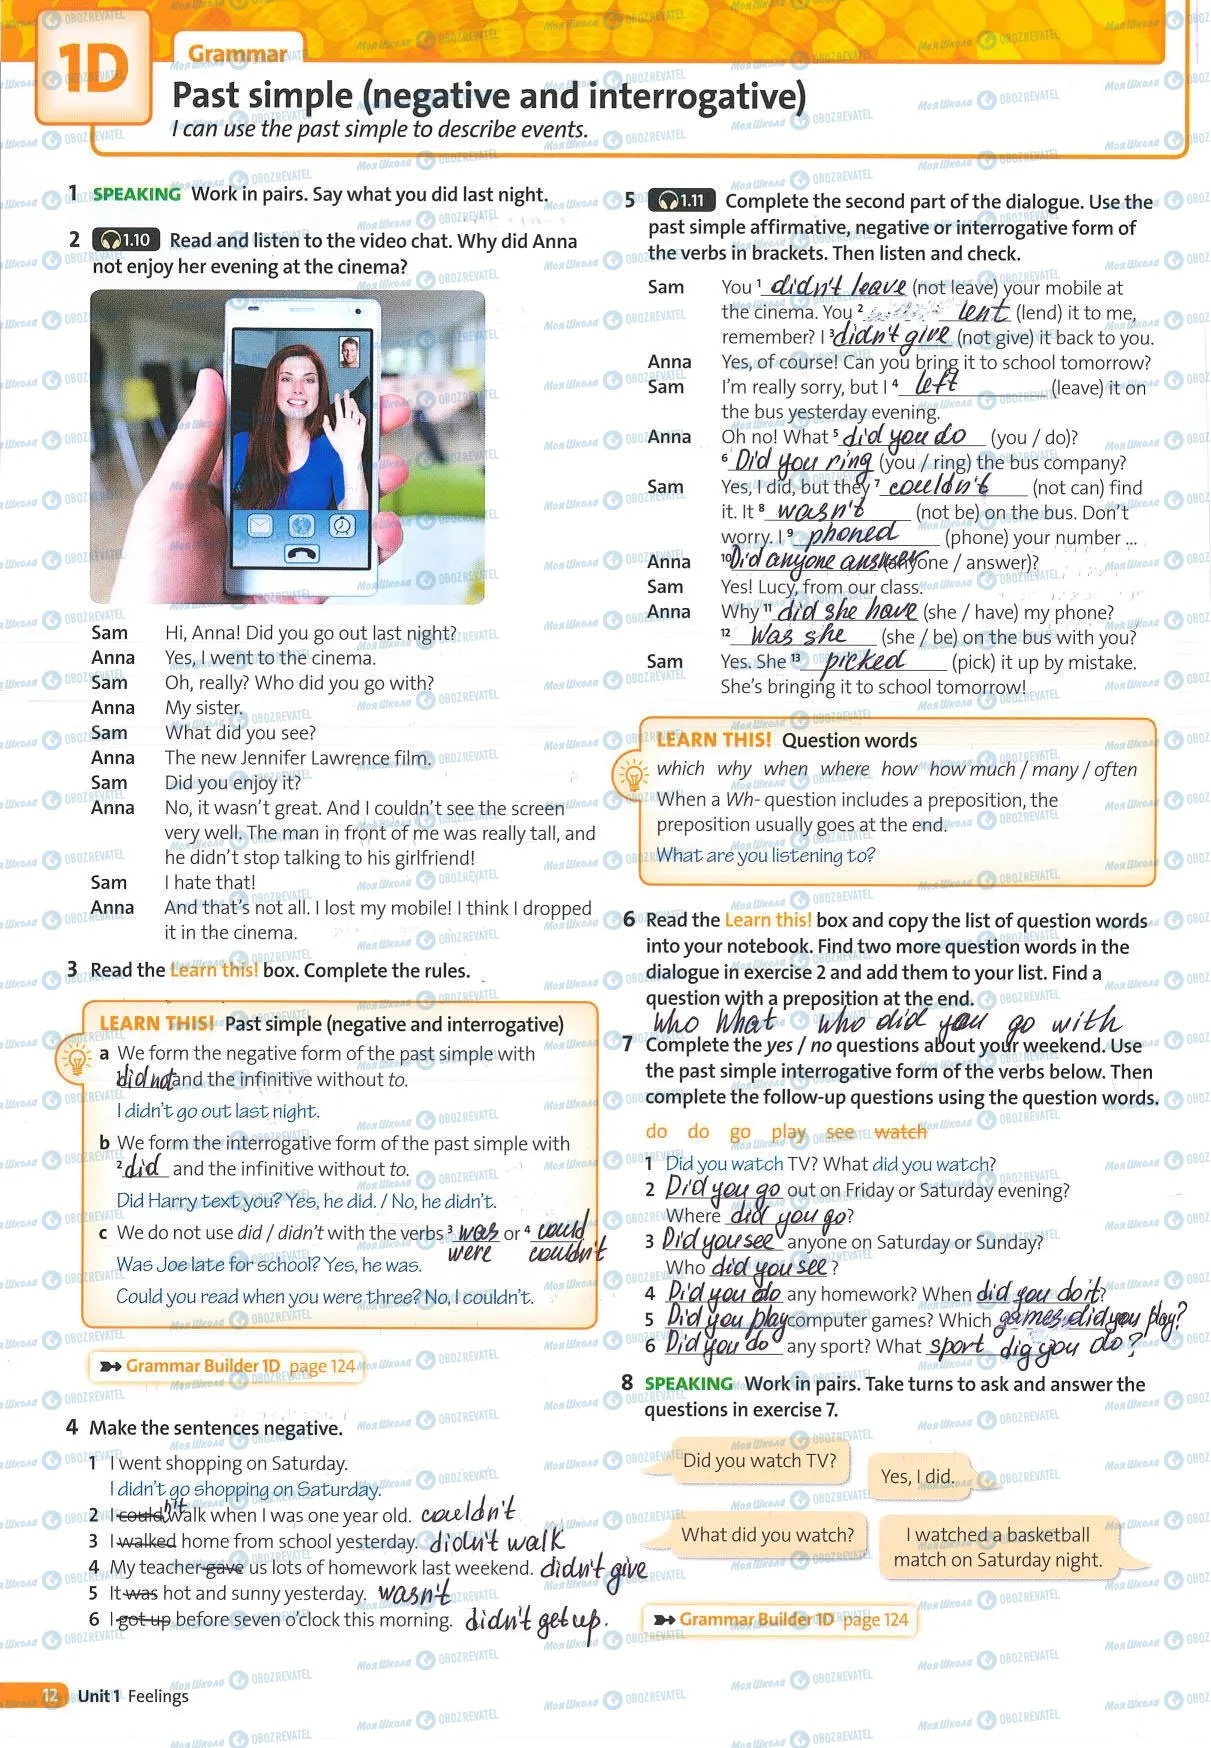 1D
Grammar
Past simple (negative and interrogative)
I can use the past simple to describe events.
1 SPEAKING Work in pairs. Say what you did last night.
2 1.10 Read and listen to the video chat. Why did Anna
not enjoy her evening at the cinema?
Sam Hi, Anna! Did you go out last night?
Anna Yes, I went to the cinema.
Sam Oh, really? Who did you go with?
Anna My sister.
Sam What did you see?
Anna The new Jennifer Lawrence film.
Sam Did you enjoy it?
Anna No, it wasn't great. And I couldn't see the screen
very well. The man in front of me was really tall, and
he didn't stop talking to his girlfriend!
Sam I hate that!
Anna And that's not all. I lost my mobile! I think I dropped
it in the cinema.
3 Read the Learn this! box. Complete the rules.
LEARN THIS! Past simple (negative and interrogative)
a We form the negative form of the past simple with
1 did not and the infinitive without to.
I didn't go out last night.
b We form the interrogative form of the past simple with
2 did and the infinitive without to.
Did Harry text you? Yes, he did. / No, he didn't.
c We do not use did / didn't with the verbs 3 was or 4 could
were couldn't
Was Joe late for school? Yes, he was.
Could you read when you were three? No, I couldn't.
Grammar Builder 1D page 124
4 Make the sentences negative.
1 I went shopping on Saturday.
I didn't go shopping on Saturday.
2 I could n't walk when I was one year old. couldn't
3 I walked home from school yesterday. didn't walk
4 My teacher gave us lots of homework last weekend. didn't give
5 It was hot and sunny yesterday. wasn't
6 I got up before seven o'clock this morning. didn't get up.
12 Unit 1 Feelings
5 1.11 Complete the second part of the dialogue. Use the
past simple affirmative, negative or interrogative form of
the verbs in brackets. Then listen and check.
Sam You 1 didn't leave (not leave) your mobile at
the cinema. You 2 lent (lend) it to me,
remember? I 3 didn't give (not give) it back to you.
Anna Yes, of course! Can you bring it to school tomorrow?
Sam I'm really sorry, but I 4 left (leave) it on
the bus yesterday evening.
Anna Oh no! What 5 did you do (you / do)?
6 Did you ring (you / ring) the bus company?
Sam Yes, I did, but they 7 couldn't (not can) find
it. It 8 wasn't (not be) on the bus. Don't
worry. I 9 phoned (phone) your number ...
Anna 10 Did anyone answer (anyone / answer)?
Sam Yes! Lucy, from our class.
Anna Why 11 did she have (she / have) my phone?
12 Was she (she / be) on the bus with you?
Sam Yes. She 13 picked (pick) it up by mistake.
She's bringing it to school tomorrow!
LEARN THIS! Question words
which why when where how how much / many / often
When a Wh- question includes a preposition, the
preposition usually goes at the end.
What are you listening to?
6 Read the Learn this! box and copy the list of question words
into your notebook. Find two more question words in the
dialogue in exercise 2 and add them to your list. Find a
question with a preposition at the end.
Who What Who did you go with
7 Complete the yes / no questions about your weekend. Use
the past simple interrogative form of the verbs below. Then
complete the follow-up questions using the question words.
do do go play see watch
1 Did you watch TV? What did you watch?
2 Did you go out on Friday or Saturday evening?
Where did you go?
3 Did you see anyone on Saturday or Sunday?
Who did you see?
4 Did you do any homework? When did you do it?
5 Did you play computer games? Which games did you play?
6 Did you do any sport? What sport dig you do?
8 SPEAKING Work in pairs. Take turns to ask and answer the
questions in exercise 7.
Did you watch TV?
Yes, I did.
What did you watch?
I watched a basketball
match on Saturday night.
Grammar Builder 1D page 124
Моя Школа OBOZREVATEL